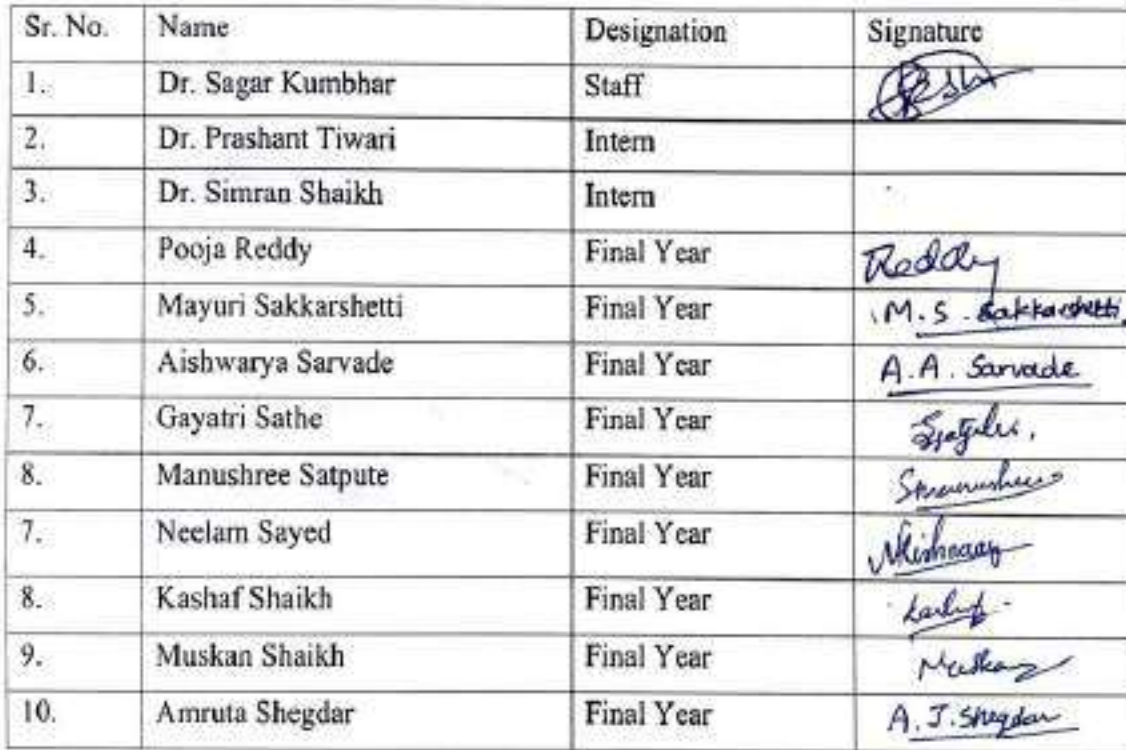 Sr. No. Name Designation Signature
1. Dr. Sagar Kumbhar Staff
2. Dr. Prashant Tiwari Intern
3. Dr. Simran Shaikh Intern
4. Pooja Reddy Final Year Reddy
5. Mayuri Sakkarshetti Final Year M.S. Sakkarshetti
6. Aishwarya Sarvade Final Year A.A. Sarvade
7. Gayatri Sathe Final Year
8. Manushree Satpute Final Year
7. Neelam Sayed Final Year
8. Kashaf Shaikh Final Year
9. Muskan Shaikh Final Year
10. Amruta Shegdar Final Year A.J. Shegdar